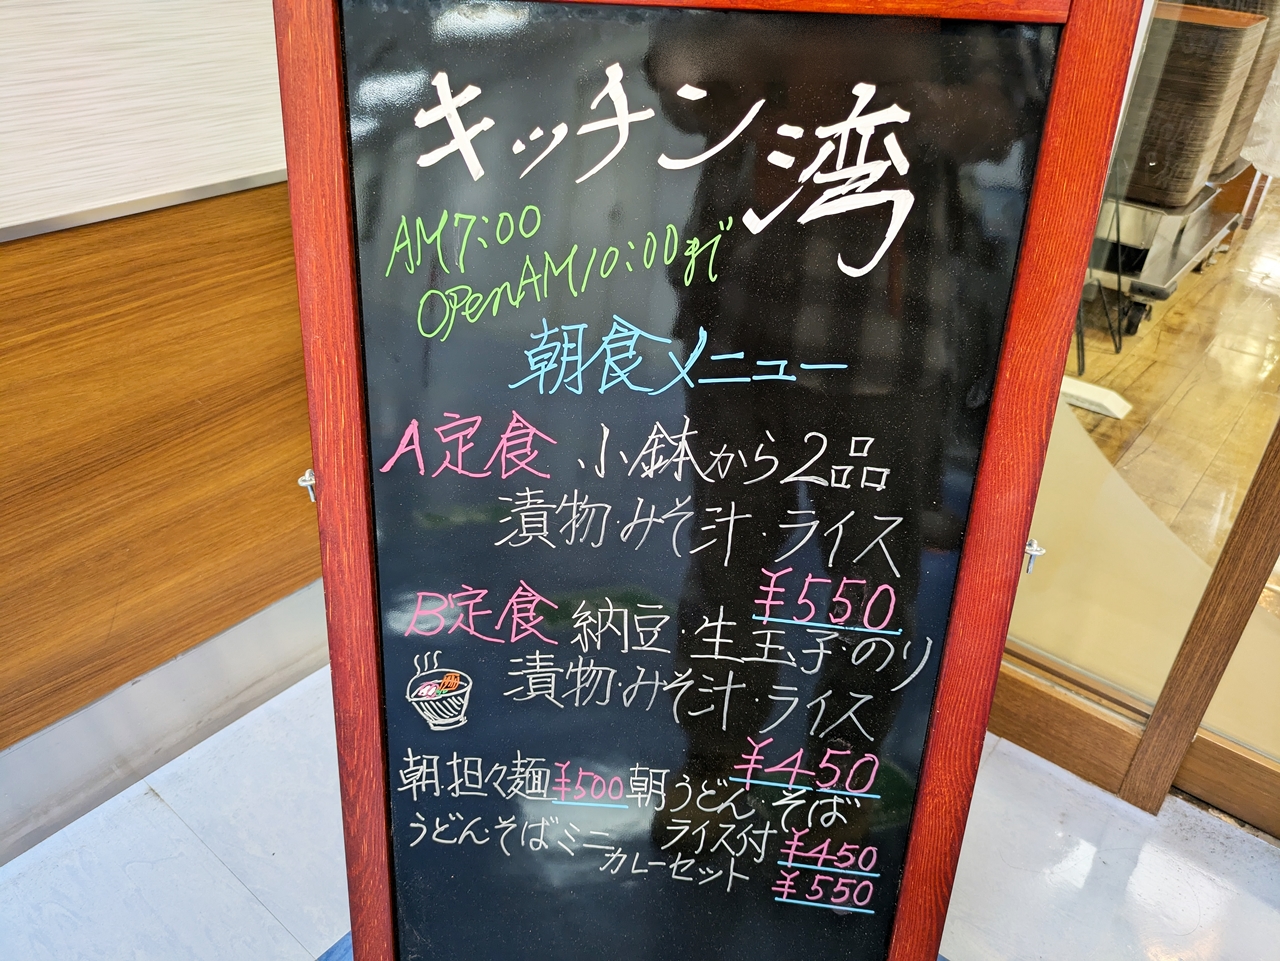 キッチン湾
AM7:00
OPenAM10:00まで
朝食メニュー
A定食 小鉢から2品
漬物・みそ汁・ライス
¥550
B定食 納豆・生玉子・のり
漬物・みそ汁・ライス
¥450
朝担々麺¥500 朝うどん・そば
ライス付 ¥450
うどん・そばミニカレーセット ¥550